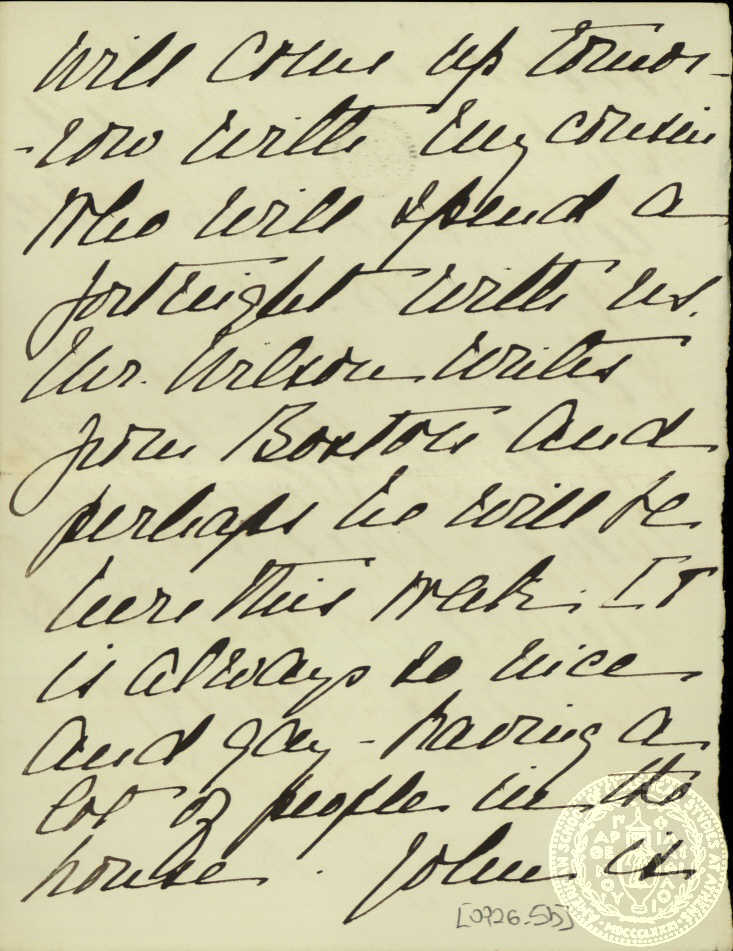 will come up tomor-
-row with my cousin
who will spend a
fortnight with us.
Mr. Wilson writes
from Boston and
perhaps he will be
here this week. It
is always so nice
and gay - having a
lot of people in the
house. John is
[0726-5b]
MDCCCLXXXI